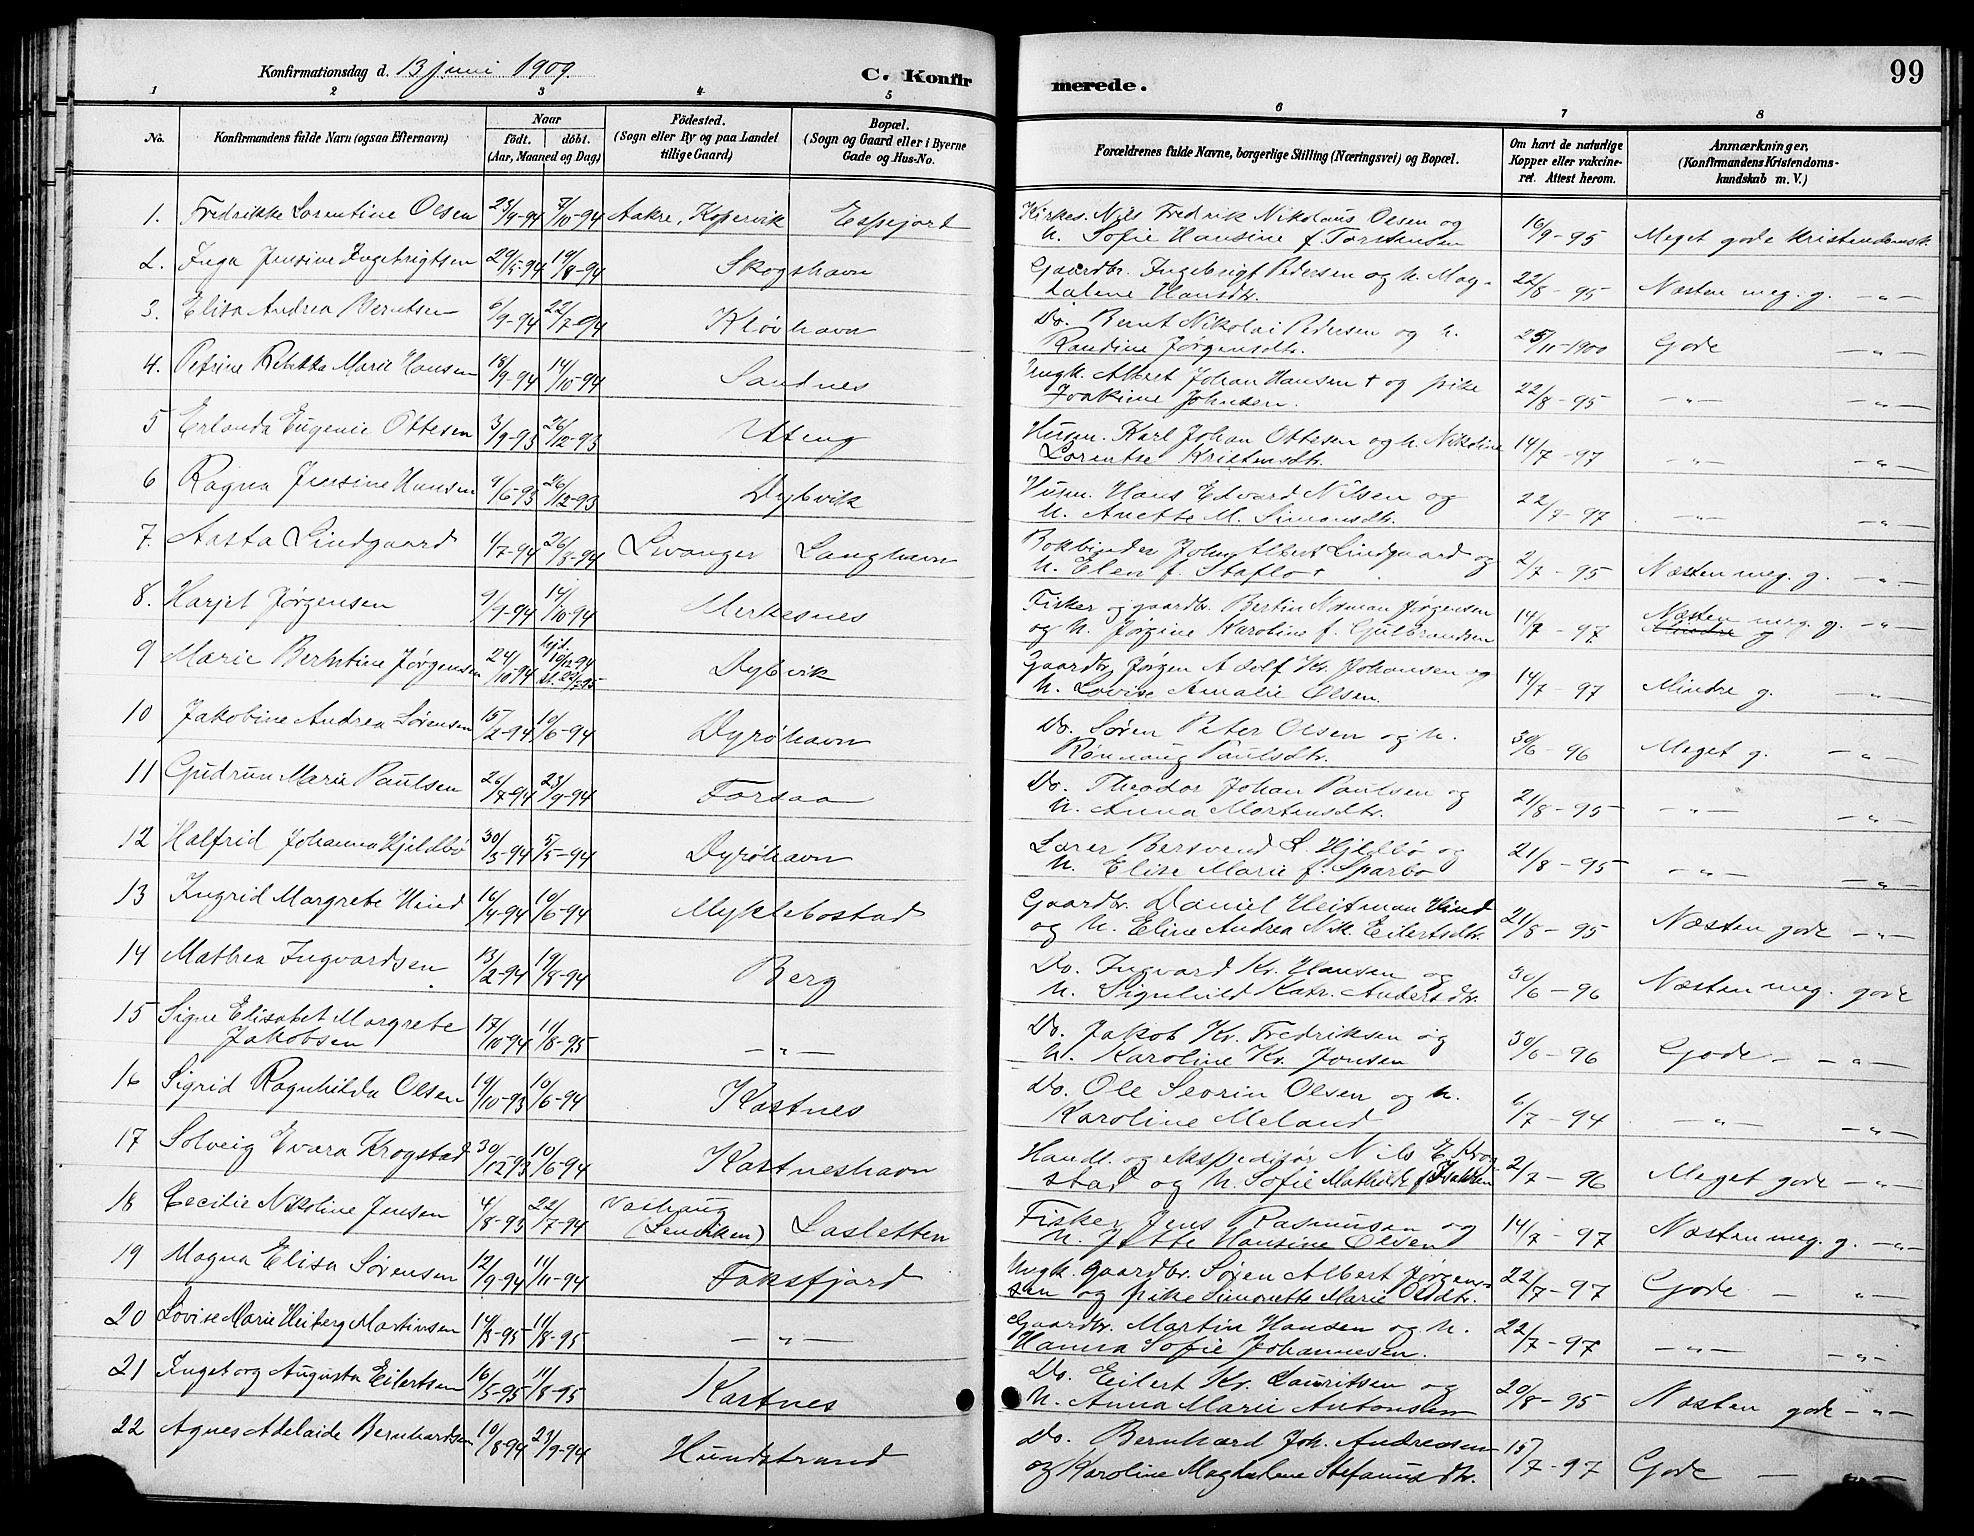 Konfirmationsdag d. 13 juni 1909.
C. Konfirmerede.
99
1 2 3 4 5 6 7 8
No.
Konfirmandens fulde Navn (ogsaa Efternavn)
Naar
födt. döbt.
(Aar, Maaned og Dag)
Födested.
(Sogn eller By og paa Landet
tillige Gaard)
Bopæl.
(Sogn og Gaard eller i Byerne
Gade og Hus-No.
Forældrenes fulde Navne, borgerlige Stilling (Næringsvei) og Bopæl.
Om havt de naturlige
Kopper eller vakcine-
ret. Attest herom.
Anmærkninger,
(Konfirmandens Kristendoms-
kundskab m. V.)
1. Fredrikke Lorentine Olsen 23/9-94 7/10-94 Aakre, Kopervik Espejord Kirkes. Nils Fredrik Nikolaus Olsen og 16/9-95 Meget gode Kristendomsk.
h. Sofie Hansine f. Torstensen
2. Inga Jensine Ingebrigtsen 29/5-94 19/8-94 Skogshavn Gaardbr. Ingebrigt Pedersen og h. Mag- 22/8-95 Næsten meg. g. -"-
dalene Hansdtr.
3. Elisa Andrea Berntsen 6/9-94 22/7-94 Kløvhavn Do. Bernt Nikolai Pedersen og h. 25/11-1900 Gode -"-
Randine Jørgensdtr.
4. Petrine Rebekka Marie Hansen 18/9-94 14/10-94 Sandnes Ungk. Albert Johan Hansen + og pike 22/8-95 -"- -"-
Joakime Johnsen.
5 Erlanda Eugenie Ottesen 3/9-93 26/12-93 Utteng Husm. Karl Johan Ottesen og h. Nikoline 14/7-97 -"- -"-
Lorentse Kristensdtr.
6 Ragna Jensine Hansen 4/6-93 26/12-93 Dybvik Husm. Hans Edvard Nilsen og 22/7-97 -"- -"-
h. Anette M. Simonsdtr.
7. Aasta Lindgaard 1/7-94 26/8-94 Levanger Langhavn Bokbinder Johan Albert Lindgaard og 2/7-95 Næsten meg. g. -"-
h. Elen f. Staflo +
8. Harjet Jørgensen 9/9-94 14/10-94 Merkesnes Fisker og gaardbr. Bertin Norman Jørgensen 14/7-97 Næsten meg. g. -"-
og h. Jørgine Karoline f. Gulbrandsen Mindre g
9 Marie Berntine Jørgensen 24/10-94 hjd. 10/12-94 st. 22/7-95 Dybvik Gaardbr. Jørgen Adolf Kr. Johansen og 14/7-97 Mindre g. -"-
h. Lovise Amalie Olsen.
10 Jakobine Andrea Sørensen 15/2-94 10/6-94 Dyrøhavn Do. Søren Peter Olsen og h. 30/6-96 Meget g. -"-
Rønnaug Paulsdtr.
11 Gudrun Marie Paulsen 26/7-94 23/9-94 Forsaa Do. Theodor Johan Paulsen og 21/8-95 -"- -"-
h. Anna Mortensdtr.
12 Halfrid Johanna Hjeldbø 30/3-94 5/5-94 Dyrøhavn Lærer Bersvend L. Hjeldbø og 21/8-95 -"- -"-
h. Elise Marie f. Sparbo
13 Ingrid Margrete Hind 16/4-94 10/6-94 Myklebostad Gaardbr. Daniel Heitman Hind 21/8-95 Næsten gode -"-
og h. Eline Andrea Nik. Eilertsdtr.
14 Mathea Ingvardsen 13/2-94 19/8-94 Berg Do. Ingvard Kr. Hansen og 30/6-96 Næsten meg. gode
h. Signhild Katr. Andersdtr.
15 Signe Elisabet Margrete 17/10-94 11/8-95 -"- Do. Jakob Kr. Fredriksen og 30/6-96 Gode -"-
Jakobsen h. Karoline Kr. Jonsen
16 Sigrid Ragnhilda Olsen 19/10-93 10/6-94 Kastnes Do. Ole Seorin Olsen og h. 6/7-94 -"- -"-
Karoline Meland
17 Solveig Evara Krogstad 30/12-93 10/6-94 Kastneshavn Handl. og ekspeditør Nils E. Krog- 2/7-96 Meget gode -"-
stad og h. Sofie Mathilde f. Isaksen
18 Cecilie Nikoline Jensen 4/8-93 22/7-94 (Lenviken) Lasletten Fisker Jens Rasmusen og 14/7-97 Næsten meg. g. -"-
h. Jette Hansine Olsen
19 Magna Elisa Sørensen 12/9-94 11/11-94 Faksfjord Ungk. gaardbr. Søren Albert Jørgen- 22/7-97 Gode -"-
sen og pike Simonette Marie Olsdtr.
20 Lovise Marie Heiberg Martinsen 14/3-95 11/8-95 -"- Gaardbr. Martin Hansen og h. 22/7-97 -"- -"-
Hanna Sofie Johannesen.
21 Ingeborg Augusta Eilertsen 16/5-95 11/8-95 Kastnes Do. Eilert Kr. Lauritsen og 20/8-95 Næsten gode -"-
h. Anna Marie Antonsen
22 Agnes Adelaide Bernhardsen 19/8-94 23/9-94 Hundstrand Do. Bernhard Joh. Andreasen 15/7-97 Gode -"-
og Karoline Magdalene Stefanusdtr.